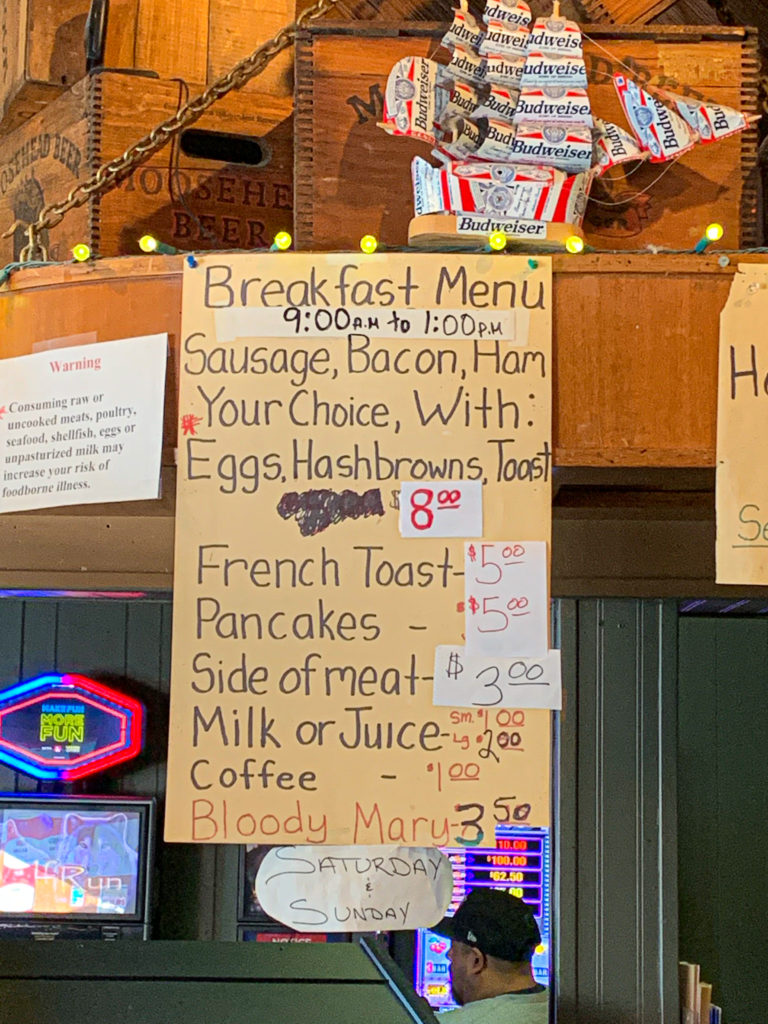 MOOSEHEAD BEER
MOOSEHE
BEER
Budweiser
Budweiser
Budweiser
Budweiser
Budweiser
Budweiser
Breakfast Menu
9:00A.M to 1:00P.M
Sausage, Bacon, Ham
*Your Choice, With:
Eggs, Hashbrowns, Toast
$8.00
French Toast- $5.00
Pancakes - $5.00
Side of meat- $3.00
Milk or Juice- Sm. $1.00
Lg $2.00
Coffee - $1.00
Bloody Mary- 3.50
SATURDAY
&
SUNDAY
Warning
*Consuming raw or
uncooked meats, poultry,
seafood, shellfish, eggs or
unpasturized milk may
increase your risk of
foodborne illness.
MAKE FUN
MORE
FUN
Run
10.00
$100.00
$62.50
NOTICE
H
Se